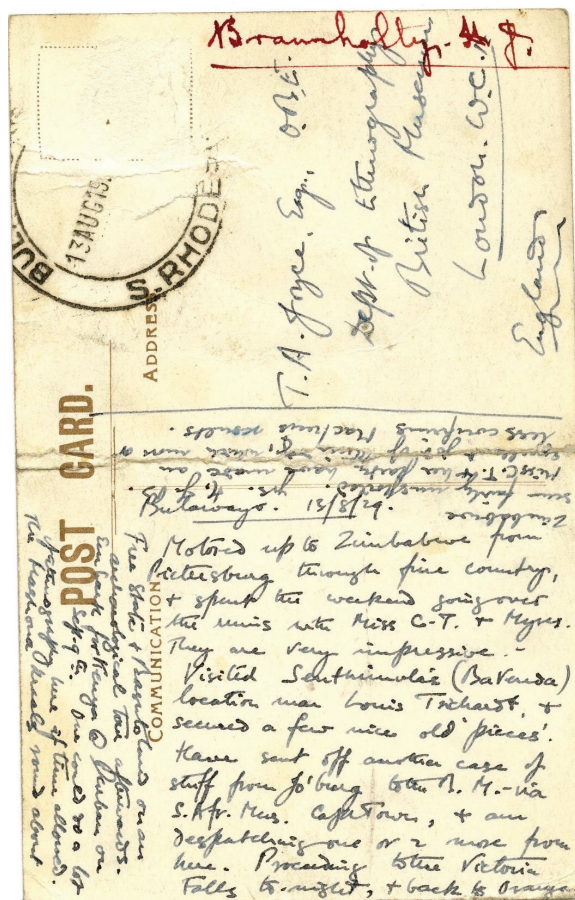 Braunholtz. H. J.
BUL
13 AUG 19
S. RHODE
POST CARD.
ADDRESS
COMMUNICATION
T. A. Joyce, Esq., O.B.E.
Dept. of Ethnography
British Museum
London. W.C.1
England
Bulawayo. 13/8/29.
Motored up to Zimbabwe from
Pietersburg through fine country,
& spent the weekend going over
the ruins with Miss C-T. & Myres.
They are very impressive. -
Visited Senthimula's (BaVenda)
location near Louis Trichardt, &
secured a few nice old 'pieces'.
Have sent off another case of
stuff from Jo'burg to the B.M. - via
S. Afr. Mus. Cape Town, & am
despatching one or 2 more from
here. Proceeding to the Victoria
Falls to-night, & back to Orange
Free State & Basutoland on an
archaeological tour afterwards.
Embark for Kenya @ Durban on
Sept. 9th. One could do a lot
of ethnography here if time allowed.
The Mashona kraals round about
Zimbabwe
seem fairly unspoiled. Yrs. H. J. B.
Miss C. T. & her party have made an
more or
less confirms MacIver's results.